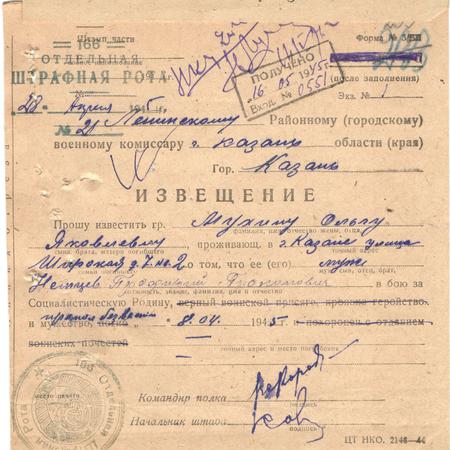 Штамп части
Форма №
166
ОТДЕЛЬНАЯ
ШТРАФНАЯ РОТА
ПОЛУЧЕНО
16.05 1945г.
Вход. № 0551
(после заполнения)
Экз. № 1
28 апреля 1945 г.
№ 21 Ленинскому Районному (городскому)
военному комиссару г. Казань области (края)
Гор. Казань
ИЗВЕЩЕНИЕ
Прошу известить гр. Мухину Ольгу
фамилия, имя, отчество жены, отца,
Яковлевну, проживающ. в г. Казане улица
сына, брата, матери погибшего
Широкая д. 7 кв. 2, о том, что ее (его) муж
муж, сын, отец, брат,
Немцев в бою за
должность, звание, фамилия, имя и отчество
Социалистическую Родину, верный воинской присяге, проявив геройство
и мужество, пропал без вести 8.04. 1945 г. похоронен с отданием
воинских почестей
точный адрес и место погребения
166 Отдельная
Штрафная Рота
Командир полка
подпись
Начальник штаба
подпись
ЦТ НКО. 2148—44